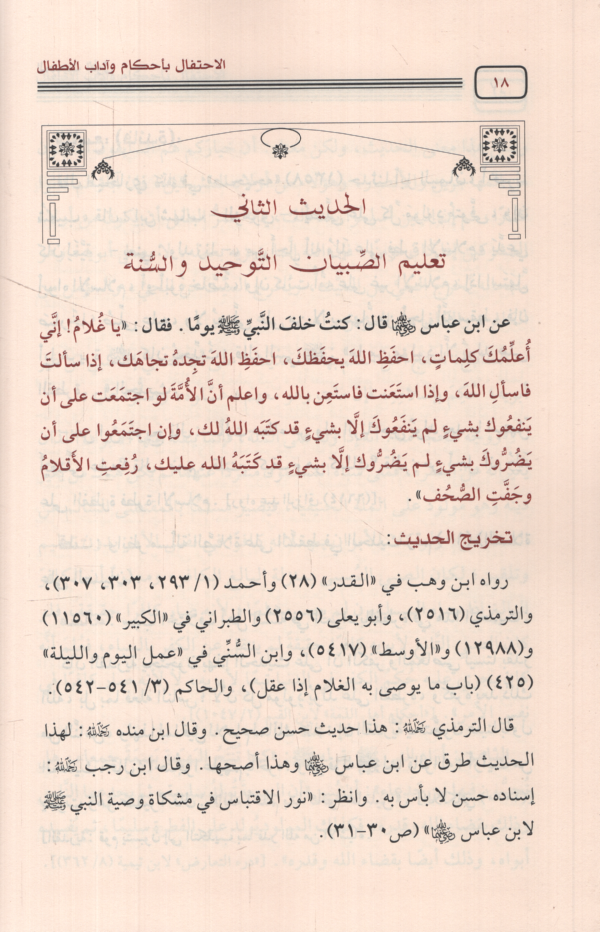 الاحتفال بأحكام وآداب الأطفال
١٨
الحديث الثاني
تعليم الصِّبيان التَّوحيد والسُّنة
عن ابن عباس ﵄ قال: كنتُ خلفَ النبيِّ ﷺ يومًا. فقال: «يا غُلامُ! إنَّي
أُعلِّمُكَ كلِماتٍ، احفَظِ اللهَ يحفَظكَ، احفَظِ اللهَ تجِدهُ تجاهَك، إذا سألتَ
فاسألِ اللهَ، وإذا استَعَنت فاستَعِن بالله، واعلم أنَّ الأُمَّةَ لو اجتمَعَت على أن
يَنفعُوك بشيءٍ لم يَنفَعُوكَ إلَّا بشيءٍ قد كتَبَه اللهُ لك، وإن اجتمَعُوا على أن
يَضُرُّوكَ بشيءٍ لم يَضُرُّوك إلَّا بشيءٍ قد كَتَبَهُ الله عليك، رُفِعتِ الأقلامُ
وجَفَّتِ الصُّحُف».
تخريج الحديث:
رواه ابن وهب في «القدر» (٢٨) وأحمد (١/ ٢٩٣، ٣٠٣، ٣٠٧)،
والترمذي (٢٥١٦)، وأبو يعلى (٢٥٥٦) والطبراني في «الكبير» (١١٥٦٠)
و(١٢٩٨٨) و«الأوسط» (٥٤١٧)، وابن السُّنِّي في «عمل اليوم والليلة»
(٤٢٥) (باب ما يوصى به الغلام إذا عقل)، والحاكم (٣/ ٥٤١-٥٤٢).
قال الترمذي ﵀: هذا حديث حسن صحيح. وقال ابن منده ﵀: لهذا
الحديث طرق عن ابن عباس ﵄ وهذا أصحها. وقال ابن رجب ﵀:
إسناده حسن لا بأس به. وانظر: «نور الاقتباس في مشكاة وصية النبي ﷺ
لابن عباس ﵄» (ص٣٠-٣١).